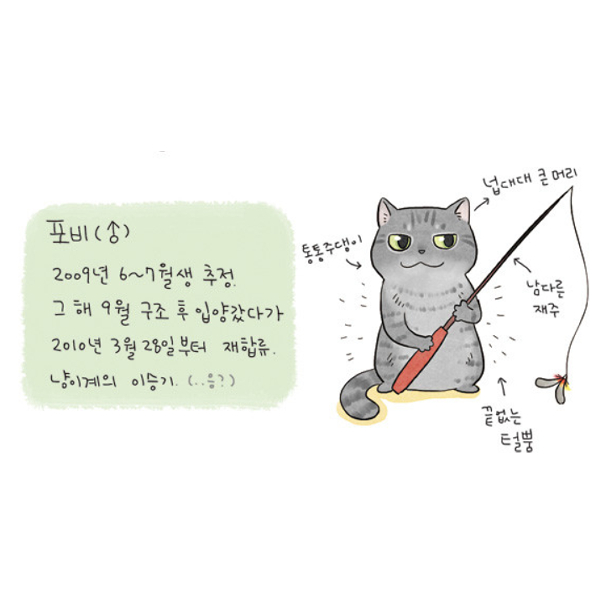 포비(송)
2009년 6~7월생 추정.
그 해 9월 구조 후 입양갔다가
2010년 3월 28일부터 재합류.
냥이계의 이승기. (..응?)
넙대대 큰 머리
통통주댕이
남다른
재주
끝없는
털뿜